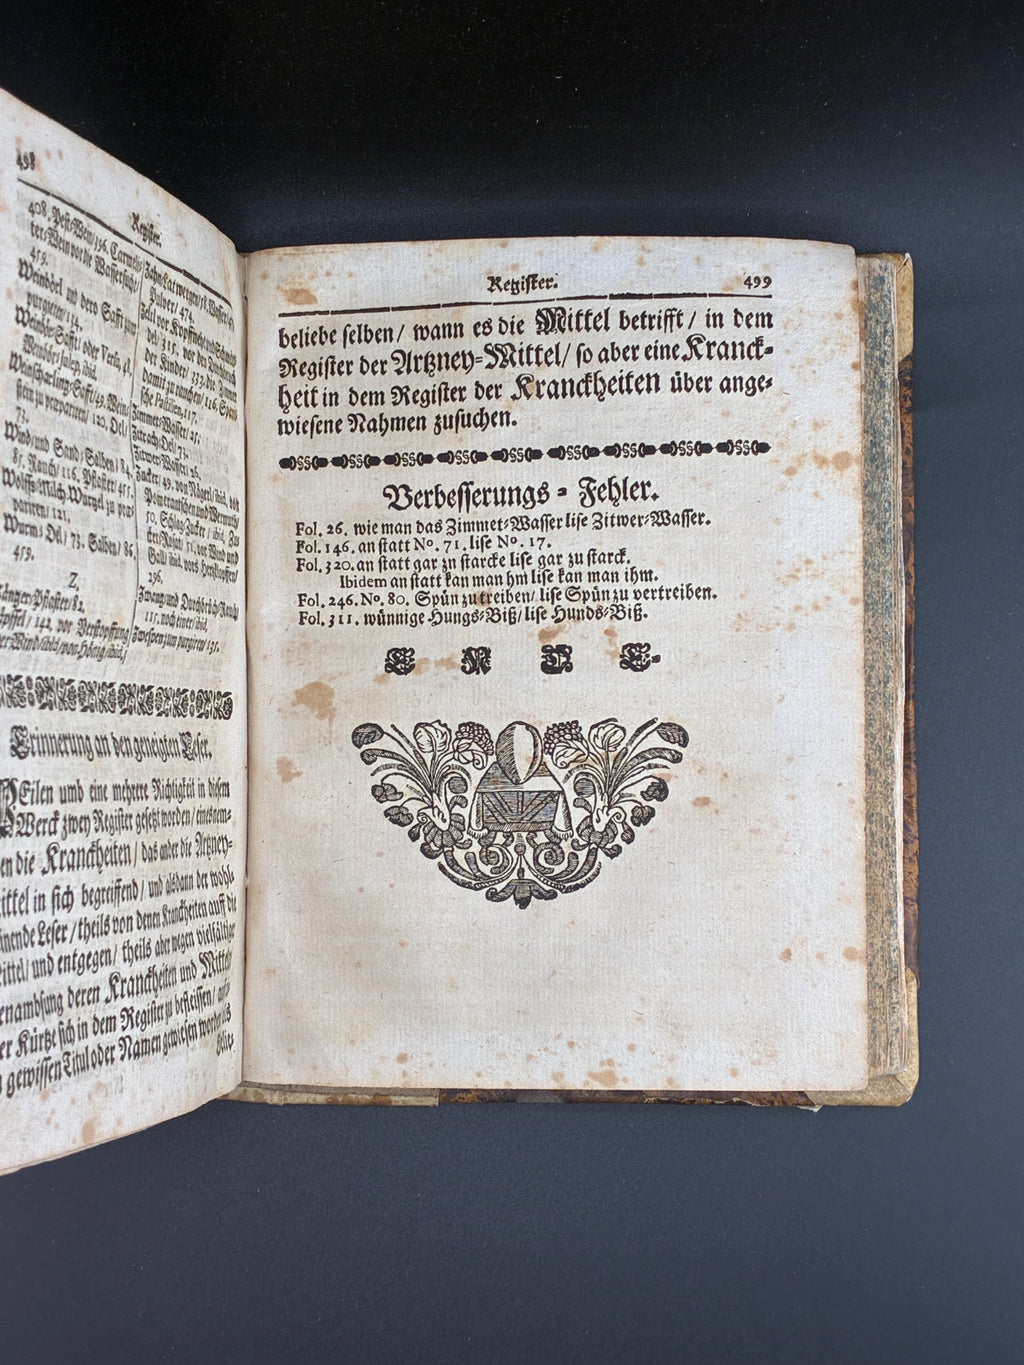 498
Register.
408. Pest/Wein/396. Carmeli-
ter/Wein vor die Wassersucht/
459.
Weinbörl mit dero Safft zum
purgieren/114.
Weinbör/Safft oder Versu, 48.
Weinbör/julep, ibid.
Weinscharling/Safft/49. Wein/
stein zu præpariren/120. Oel/
73.
Wind/und Sand/Salben/84.
85. Rauch/116. Pflaster/455.
Wolffs/Milch/Wurtzel zu præ-
pariren/121.
Wurm: Oel/73. Salben/86.
459.
Z.
Pflaster/82.
142. vor Verstopffung
ibid/von Hönig/ibid.
Zahn/Latwergen/58. Wasser/
Pulver/474.
del/315. vor den Durchbruch
der Kinder/353. die Zimmer
damit zu rauchen/116. Spani-
sche Passilien/117.
Zimmet/Wasser/25.
Zitrach/Oel/73.
Zitwer/Wasser/26.
Zucker/49. von Nägerl/ibid. von
Pomerantschen und Wermuth/
50. Schlag/Zucker/ibid. Zu-
cker/Rosat/51. vor Wind und
Gall/ibid. vors Hertzklopffen/
296.
Zwang/und Durchbruch/Rauch/
115. noch einer/ibid.
Zwespen zum purgiren/131.
Erinnerung an den geneigten Leser.
WEilen umb eine mehrere Richtigkeit in disem
Werck zwey Register gesetzt worden/
die Kranckheiten/das ander die Artzney-
Mittel in sich begreiffend/und alsdann der wohl-
meinende Leser/theils von denen Kranckheiten auff die
Mittel/und entgegen/theils aber wegen vielfältiger
Benambsung deren Kranckheiten und Mitteln
der Kürtze sich in dem Register zu befleissen/
gewissen Titul oder Namen gewiesen worden/als
belie-
Register.
499
beliebe selben/ wann es die Mittel betrifft/ in dem
Register der Artzney-Mittel/ so aber eine Kranck-
heit in dem Register der Kranckheiten über ange-
wiesene Nahmen zusuchen.
Verbesserungs-Fehler.
Fol. 26. wie man das Zimmet-Wasser lise Zitwer-Wasser.
Fol. 146. an statt No. 71. lise No. 17.
Fol. 320. an statt gar zn starcke lise gar zu starck.
Ibidem an statt kan man hm lise kan man ihm.
Fol. 246. No. 80. Spün zu treiben/ lise Spün zu vertreiben.
Fol. 311. wünnige Hungs-Biß/ lise Hunds-Biß.
E N D E.